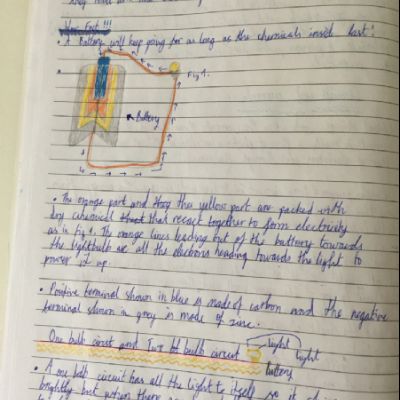 Your Fact!!!
• A Battery will keep going for as long as the chemicals inside last!
Fig 1.
Battery
• The orange part and the yellow part are packed with
dry chemical that react together to form electricity
as in Fig 1. The orange lines leading out of the battery towards
the lightbulb are all the electrons heading towards the light to
power it up.
• Positive terminal shown in blue is made of carbon and the negative
terminal shown in grey is made of zinc.
One bulb circuit and Two bulb circuit
light
light
battery
• A one bulb circuit has all the light to itself so it
brightly but when there